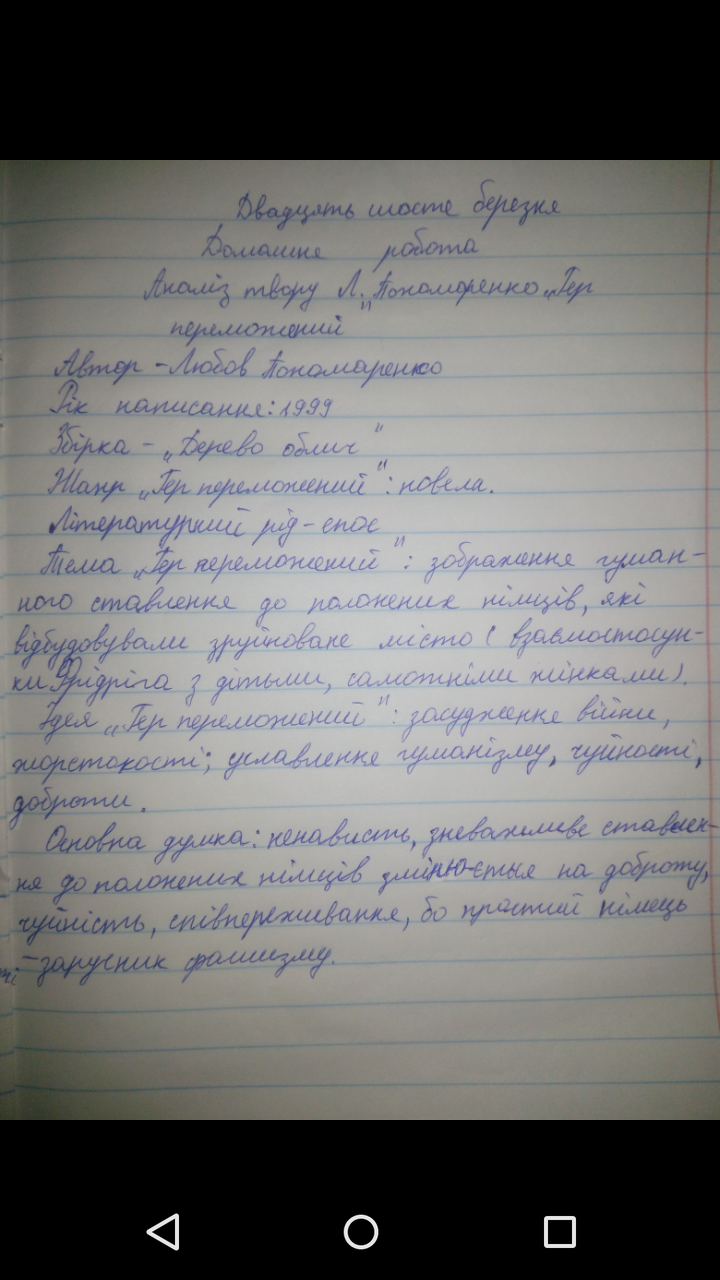 Двадцять шосте березня
Домашнє робота
Аналіз твору Л. Пономаренко „Гер
переможений"
Автор - Любов Пономаренко
Рік написання: 1999
Збірка - „Дерево облич"
Жанр „Гер переможений": новела.
Літературний рід - епос
Тема „Гер переможений": зображення гуман-
ного ставлення до полонених німців, які
відбудовували зруйноване місто (взаємостосун-
ки Фрідріга з дітьми, самотніми жінками).
Ідея „Гер переможений": засудження війни,
жорстокості; уславлення гуманізму, чуйності,
доброти.
Основна думка: ненависть, зневажливе ставлен-
ня до полонених німців змінюється на доброту,
чуйність, співпереживання, бо простий німець
- заручник фашизму.